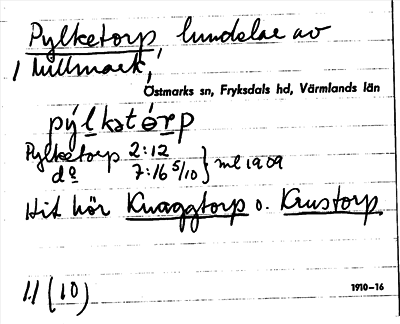 Pylketorp lundelar av
1 tullmark,
Östmarks sn, Fryksdals hd, Värmlands län
pýlkətórp
Pylketorp 2:12
dº 7:16 5/10 } ml 1909
Hit hör Knaggtorp o. Krustorp
1.1 (10)
1910-16